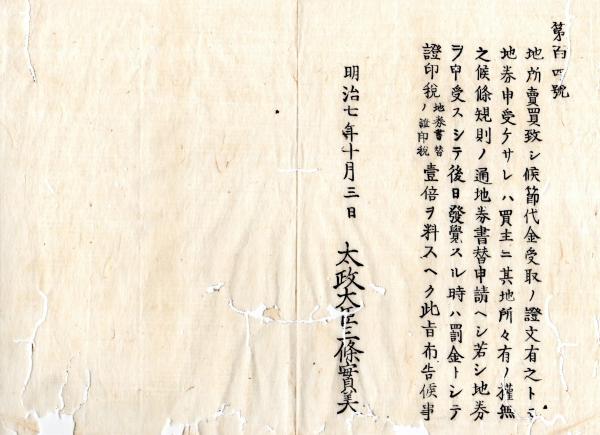 第百四號
地所賣買致シ候節代金受取ノ證文有之トモ
地券申受ケサレハ買主ニ其地所々有ノ權無
之候條規則ノ通地券書替申請ヘシ若シ地券
ヲ申受スシテ後日發覺スル時ハ罰金トシテ
證印税地券書替ノ證印税壹倍ヲ料スヘク此旨布告候事
明治七年十月三日
太政大臣三條實美